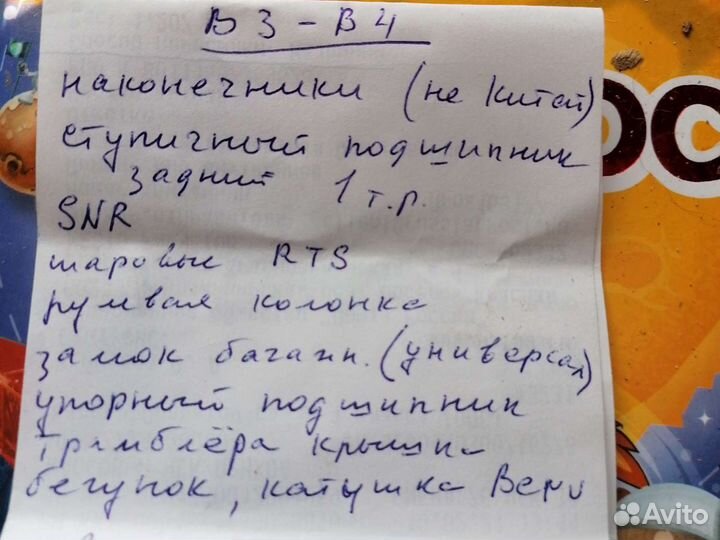 В 3 - В 4
наконечники (не Китай)
ступичный подшипник
задний 1 т.р.
SNR
шаровые RTS
рулвая колонка
замок багажн. (универсал)
упорный подшипник
трамблёра крышка
бегунок, катушка Beru
ОС
Avito